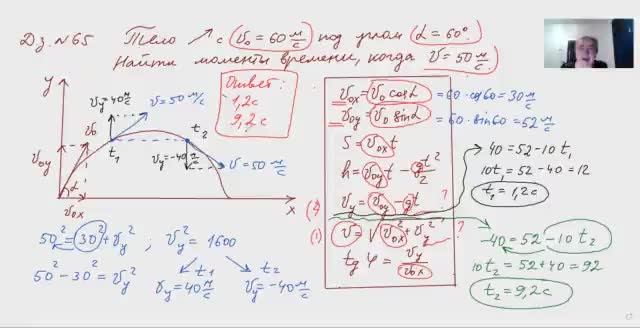 Дз. №65 Тело ↗ с v₀ = 60 м/с под углом α = 60°.
Найти моменты времени, когда v = 50 м/с
Ответ:
1,2с
9,2с
y
vy = 40 м/с
v = 50 м/с
v₀
v₀y
t₁
t₂
vy = -40 м/с
v = 50 м/с
α
v₀x
x
v₀x = v₀ cosα = 60 · cos60 = 30 м/с
v₀y = v₀ sinα = 60 · sin60 = 52 м/с
S = v₀x t
h = v₀y t - gt²/2
vy = v₀y - gt ?
(1) v = √(v₀x² + vy²) ?
tg φ = vy/v₀x
40 = 52 - 10 t₁
10t₁ = 52 - 40 = 12
t₁ = 1,2 с
-40 = 52 - 10 t₂
10t₂ = 52 + 40 = 92
t₂ = 9,2 с
50² = 30² + vy² ; vy² = 1600
50² - 30² = vy²
t₁
t₂
vy = 40 м/с
vy = -40 м/с